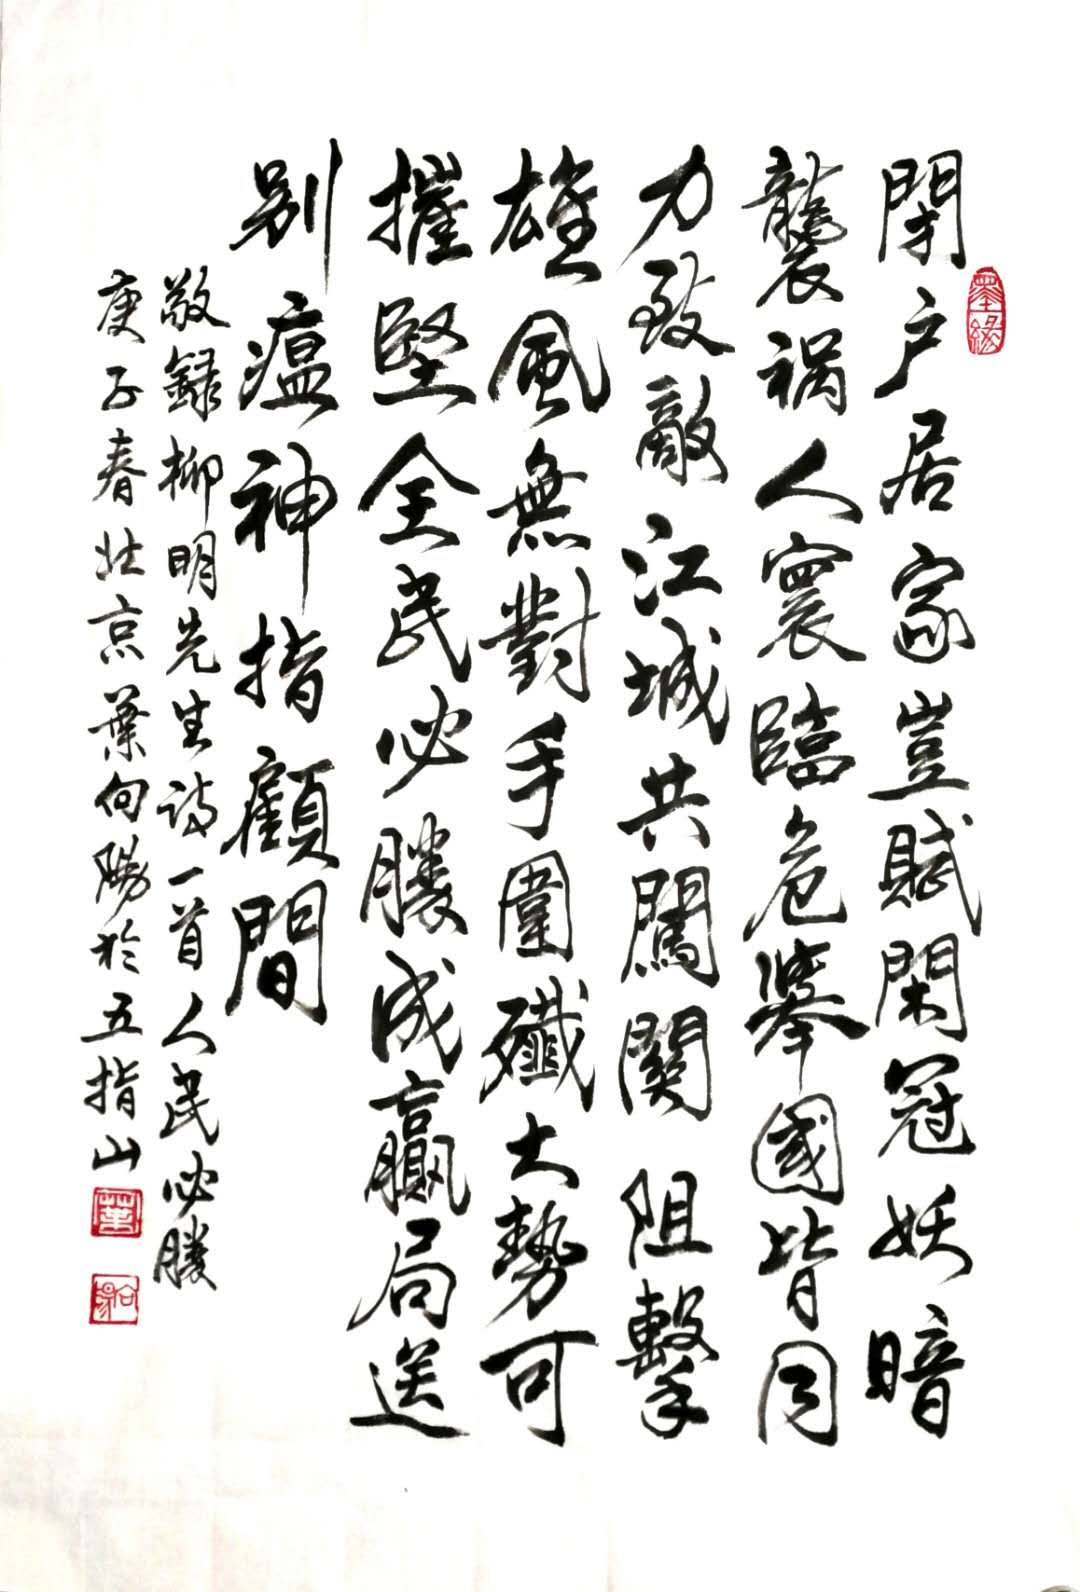 閉户居家豈賦閑冠妖暗
襲禍人寰臨危舉國皆同
力致敵江城共闖關阻擊
雄風無對手圍殲大勢可
摧堅全民必勝成贏局送
别瘟神指顧間
敬録柳明先生詩一首人民必勝
庚子春北京葉向陽於五指山
墨緣
葉